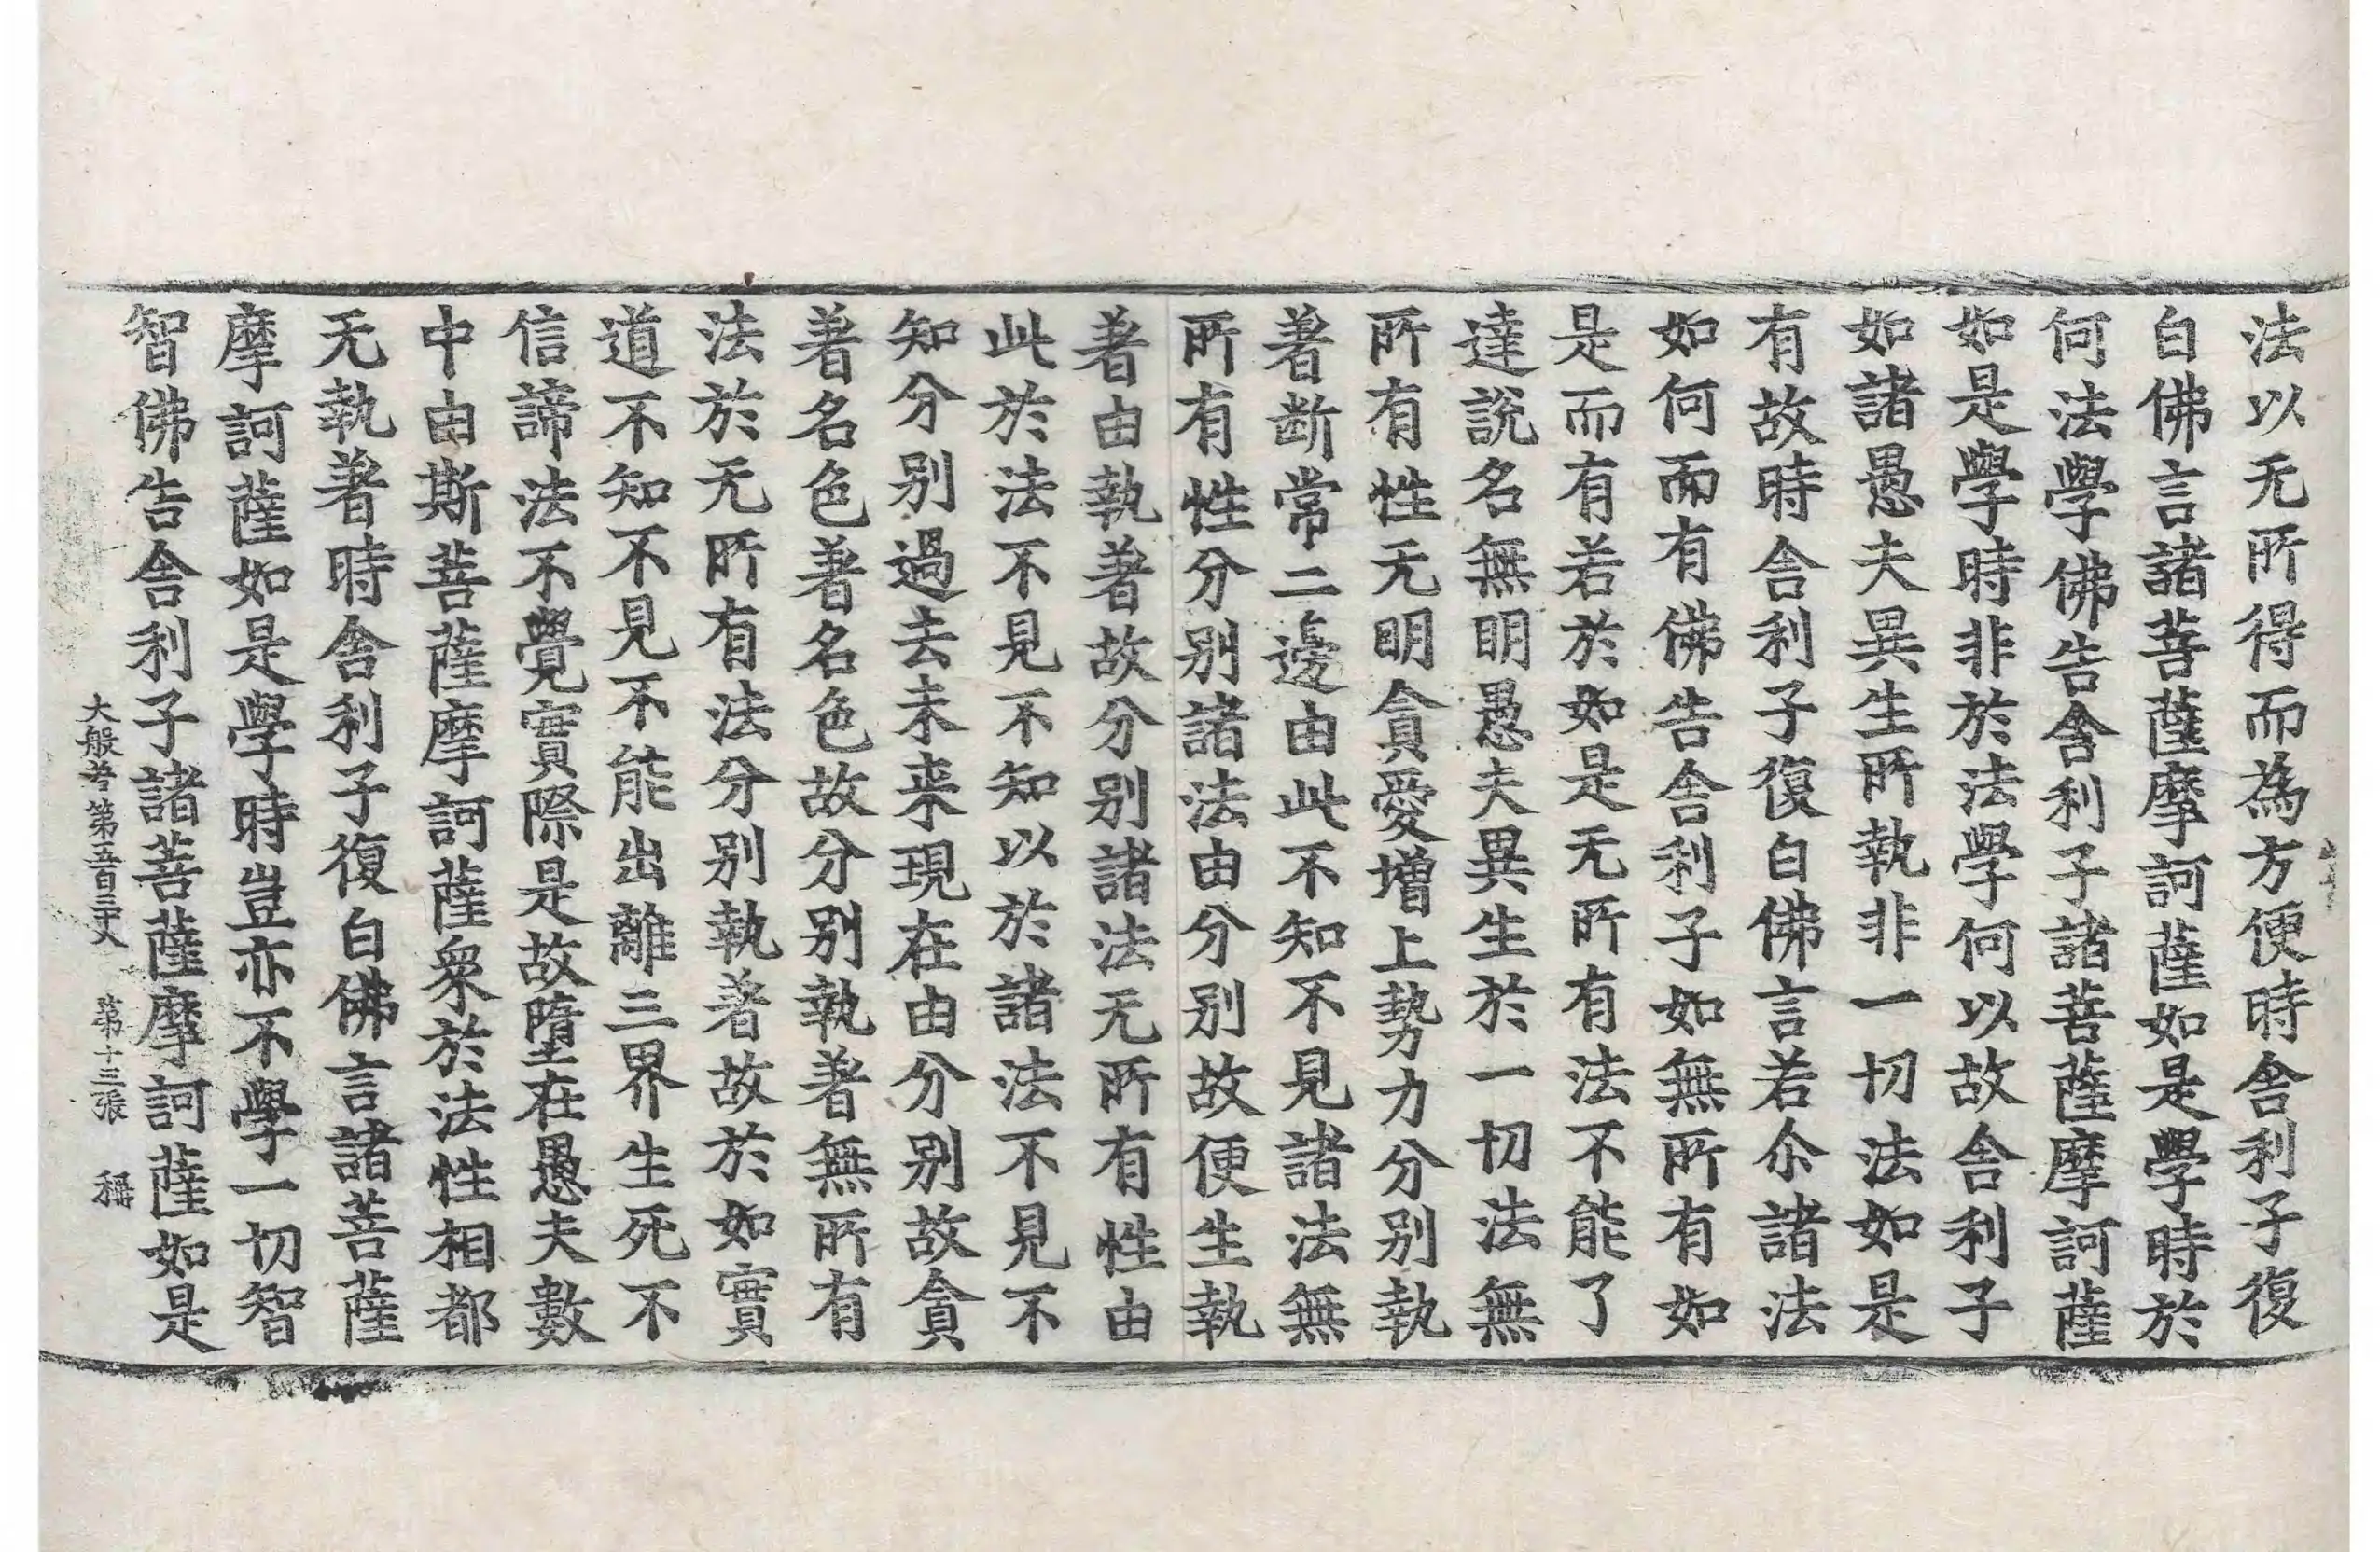 法以无所得而為方便時舎利子復
白佛言諸菩薩摩訶薩如是學時於
何法學佛告舎利子諸菩薩摩訶薩
如是學時非於法學何以故舎利子
如諸愚夫異生所執非一切法如是
有故時舎利子復白佛言若尒諸法
如何而有佛告舎利子如無所有如
是而有若於如是无所有法不能了
達說名無明愚夫異生於一切法無
所有性无明貪愛增上勢力分別執
著断常二邊由此不知不見諸法無
所有性分別諸法由分別故便生執
著由執著故分別諸法无所有性由
此於法不見不知以於諸法不見不
知分別過去未来現在由分別故貪
著名色著名色故分別執著無所有
法於无所有法分別執著故於如實
道不知不見不能出離三界生死不
信諦法不覺實際是故墮在愚夫數
中由斯菩薩摩訶薩衆於法性相都
无執著時舎利子復白佛言諸菩薩
摩訶薩如是學時豈亦不學一切智
智佛告舎利子諸菩薩摩訶薩如是
大般若第五百三 第十三張 稱